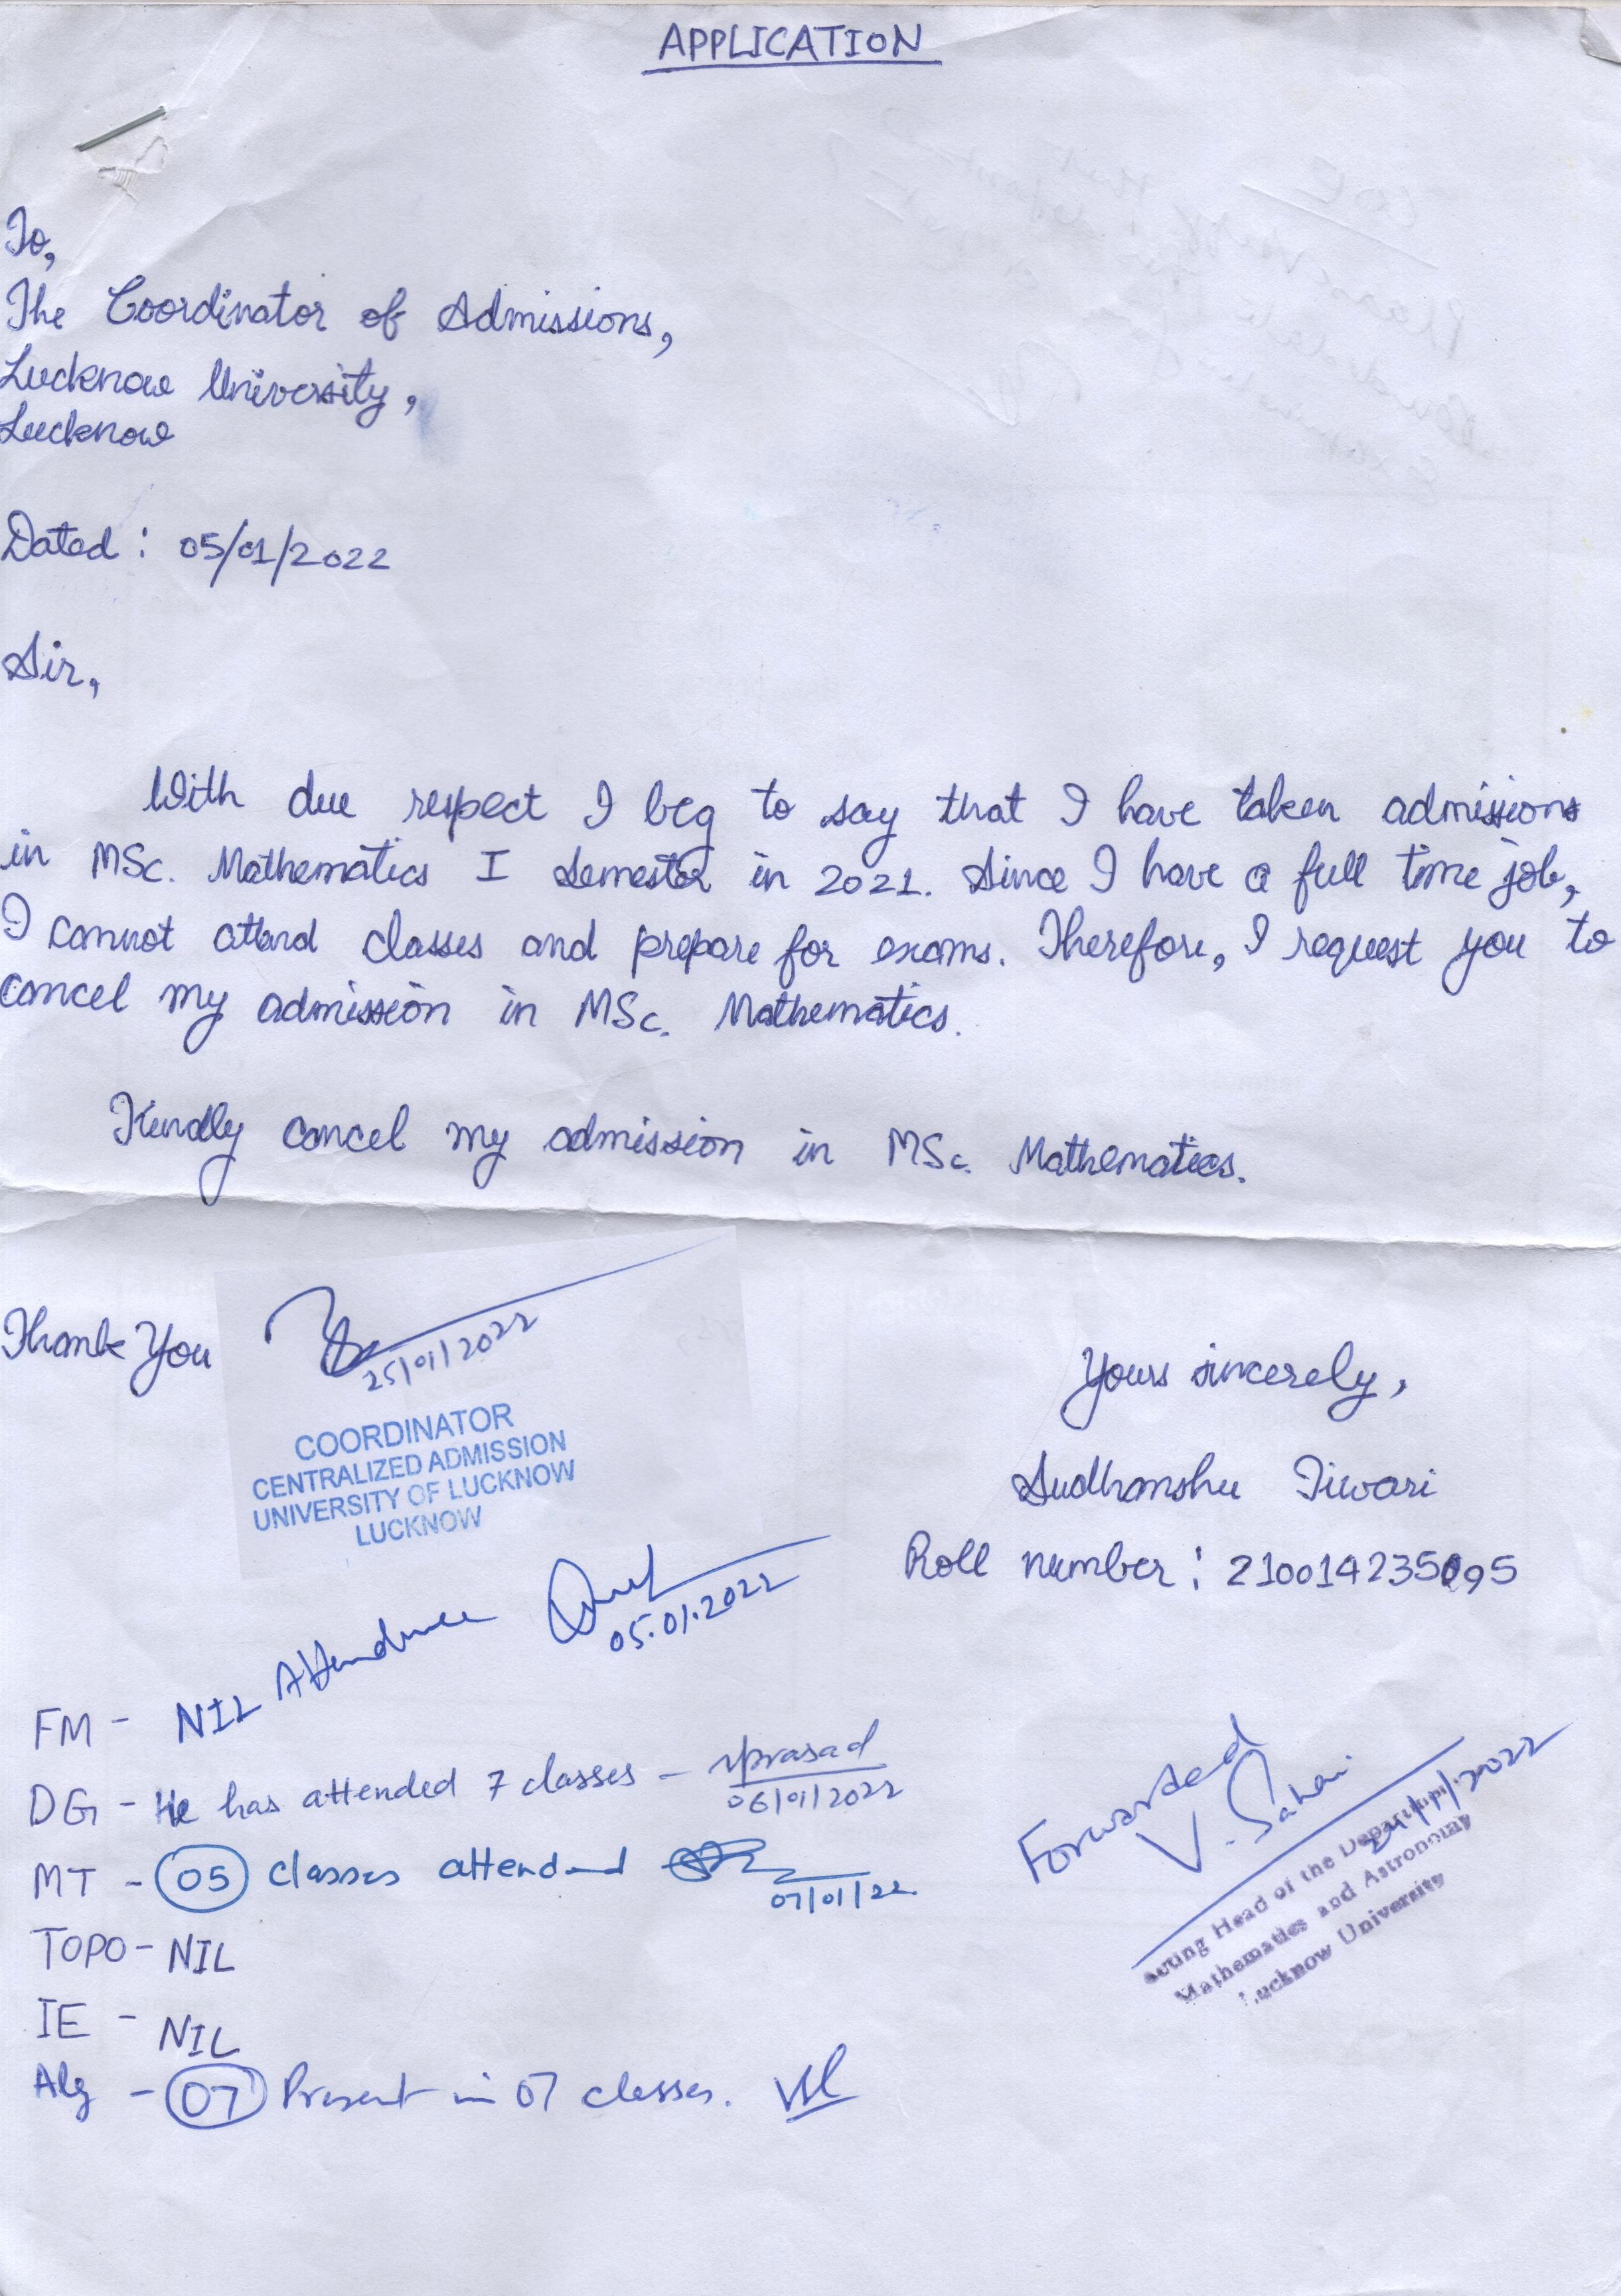 APPLICATION
To,
The Coordinator of Admissions,
Lucknow University,
Lucknow
Dated : 05/01/2022
Sir,
With due respect I beg to say that I have taken admissions
in MSc. Mathematics I Semester in 2021. Since I have a full time job,
I cannot attend classes and prepare for exams. Therefore, I request you to
cancel my admission in MSc. Mathematics.
Kindly cancel my admission in MSc. Mathematics.
Thank You
25/01/2022
COORDINATOR
CENTRALIZED ADMISSION
UNIVERSITY OF LUCKNOW
LUCKNOW
Yours sincerely,
Sudhanshu Tiwari
Roll number : 210014235095
FM - NIL Attendance
05.01.2022
DG - He has attended 7 classes - Prasad
06/01/2022
MT - 05 classes attend
07/01/22
TOPO - NIL
IE - NIL
Alg - 07 Present in 07 classes.
Forwarded
V. Sahai
Acting Head of the Department
Mathematics and Astronomy
Lucknow University